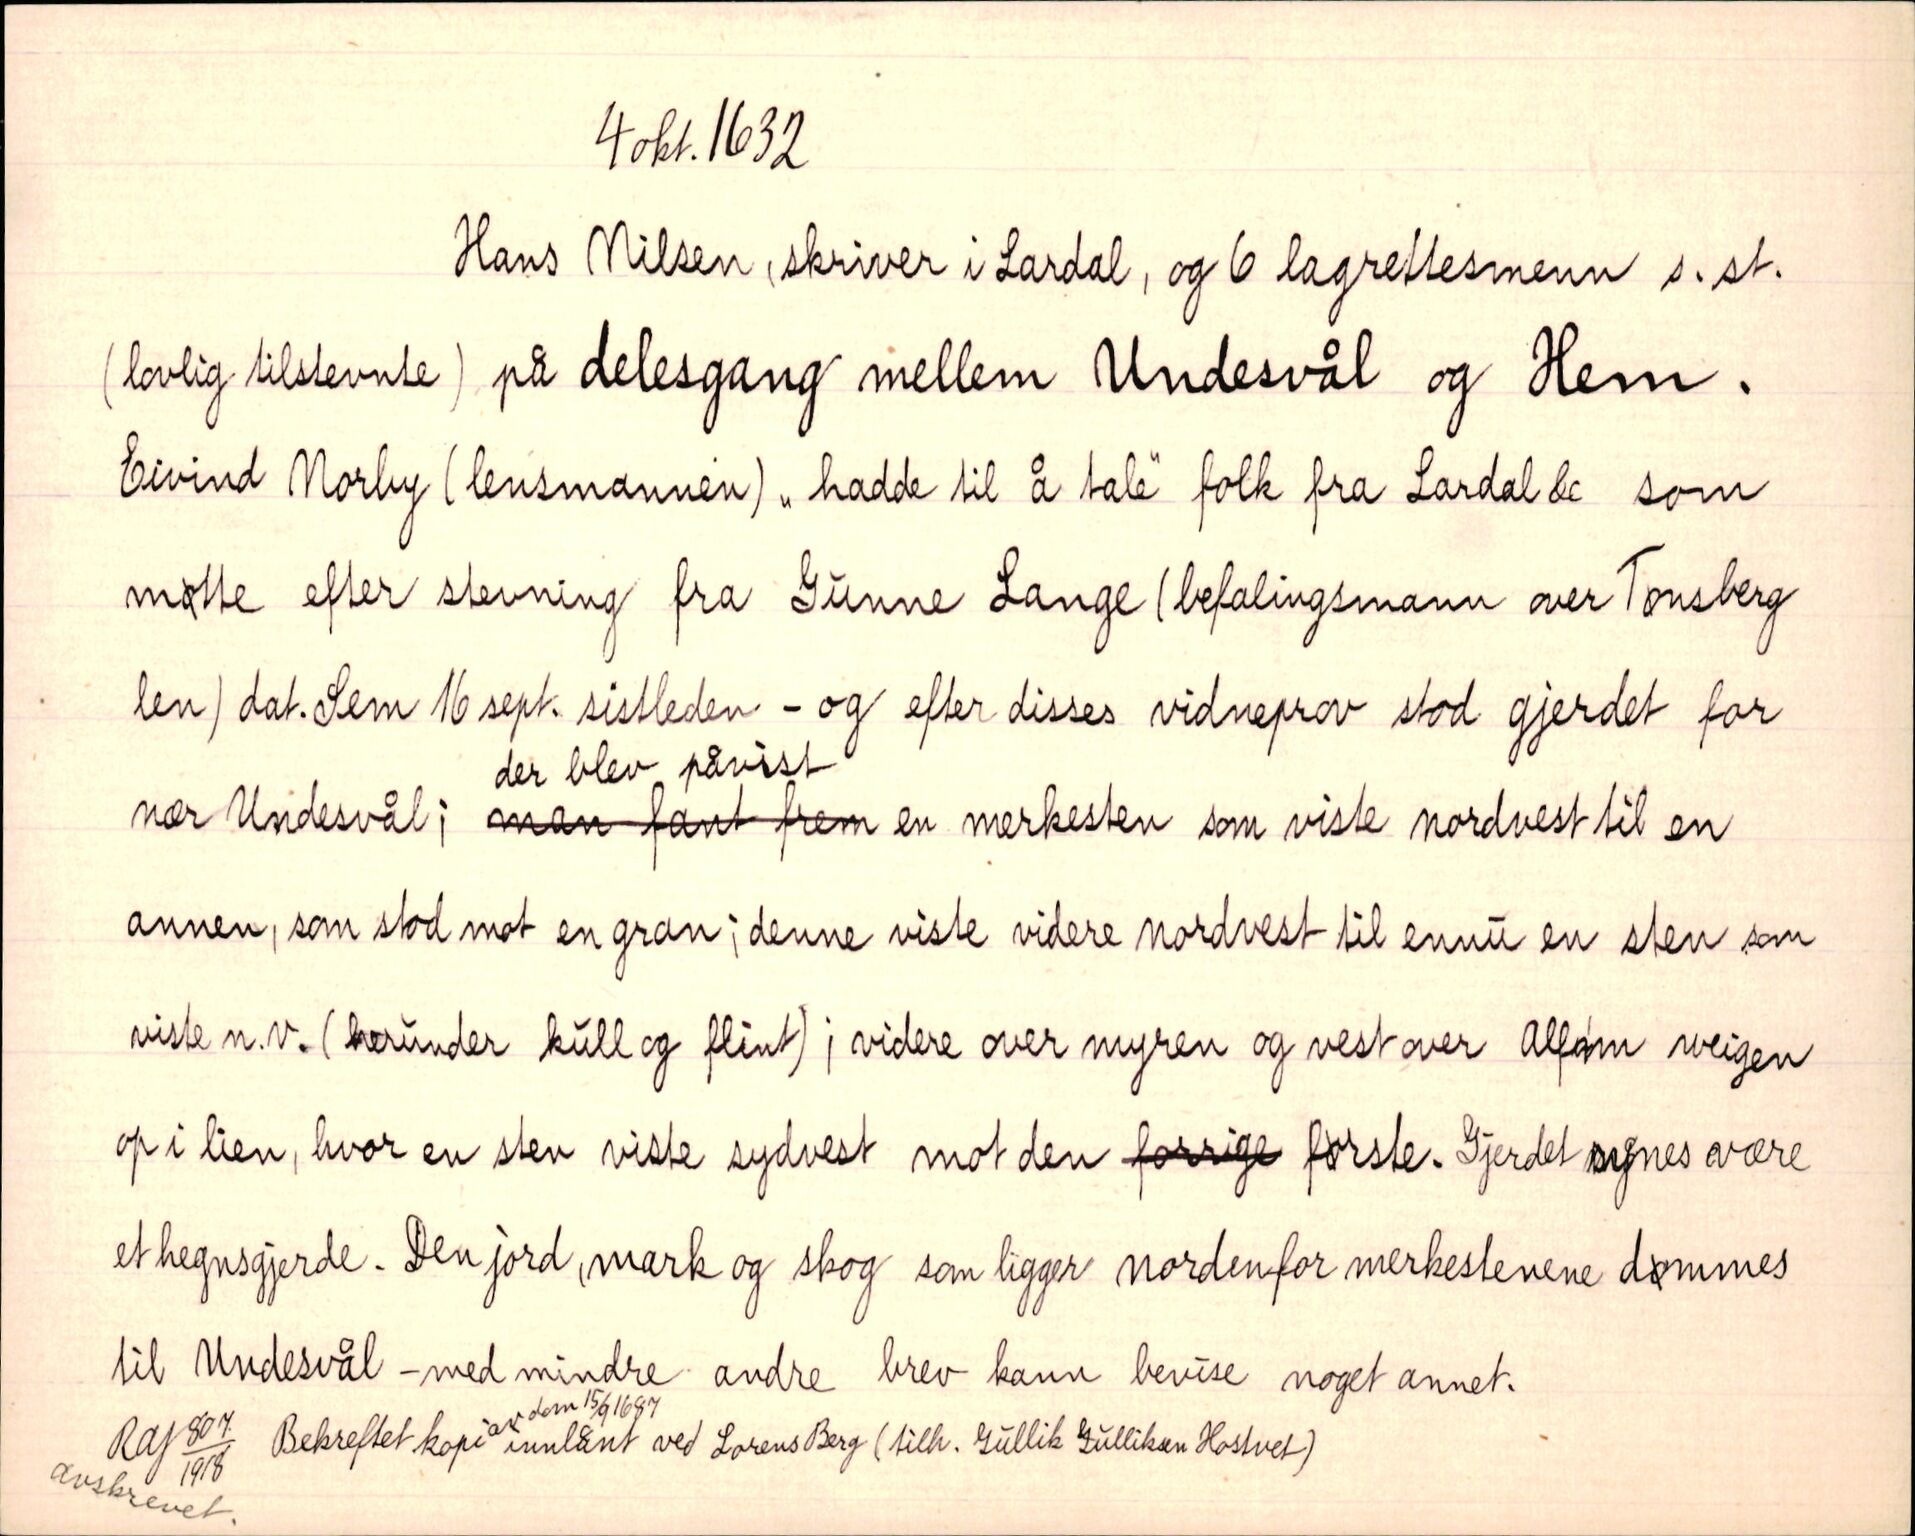 4 okt. 1632
Hans Nilsen, skriver i Lardal, og 6 lagrettesmenn s. st.
(lovlig tilstevnte) på delesgang mellem Undesvål og Hem.
Eivind Norby (lensmannen) „hadde til å tale" folk fra Lardal &c som
møtte efter stevning fra Gunne Lange (befalingsmann over Tønsberg
len) dat. Sem 16 sept. sistleden - og efter disses vidneprov stod gjerdet for
der blev påvist
nær Undesvål; man fant frem en merkesten som viste nordvest til en
annen, som stod mot en gran; denne viste videre nordvest til ennu en sten som
viste n.v. (herunder kull og flint); videre over myren og vest over weigen
op i lien, hvor en sten viste sydvest mot den forrige første. Gjerdet synes være
et hegnsgjerde. Den jord, mark og skog som ligger nordenfor merkestenene dømmes
til Undesvål - med mindre andre brev kann bevise noget annet.
av dom 15/9 1687
Raj 807/1918 Bekreftet kopi innlånt ved Lorens Berg (tilh. Gullik Gulliksen Hostvet)
avskrevet.